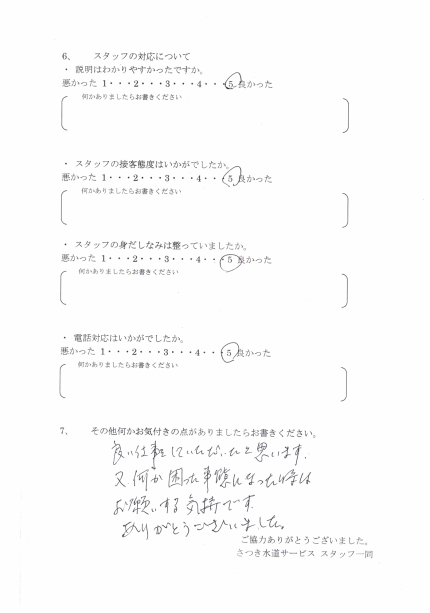 6、 スタッフの対応について
・ 説明はわかりやすかったですか。
悪かった 1・・・2・・・3・・・4・・・5 良かった
何かありましたらお書きください
・ スタッフの接客態度はいかがでしたか。
悪かった 1・・・2・・・3・・・4・・・5 良かった
何かありましたらお書きください
・ スタッフの身だしなみは整っていましたか。
悪かった 1・・・2・・・3・・・4・・・5 良かった
何かありましたらお書きください
・ 電話対応はいかがでしたか。
悪かった 1・・・2・・・3・・・4・・・5 良かった
何かありましたらお書きください
7、 その他何かお気付きの点がありましたらお書きください。
良い仕事をしていただいたと思います。
又、何か困った事態になった時は
お願いする気持です。
ありがとうございました。
ご協力ありがとうございました。
さつき水道サービス スタッフ一同